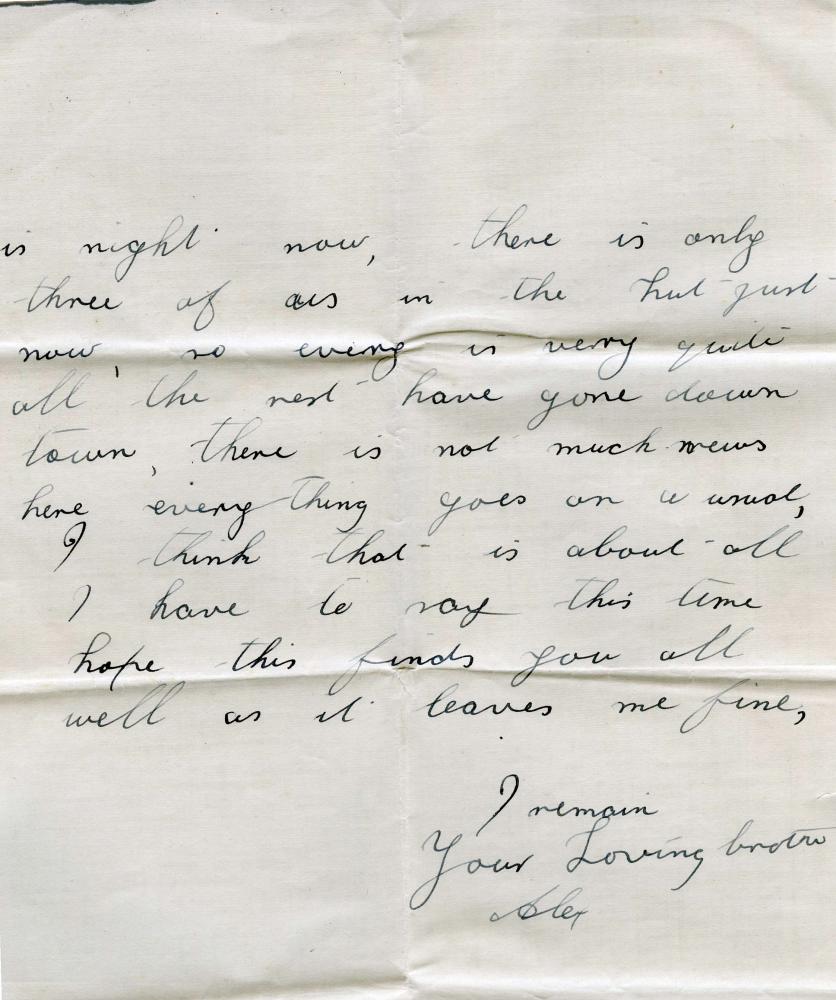 is night now, there is only
three of us in the hut just
now, so everey is very quite
all the rest have gone down
town, there is not much news
here every thing goes on a usual,
I think that is about all
I have to say this time
hope this finds you all
well as it leaves me fine,
I remain
Your Loving brother
Alex